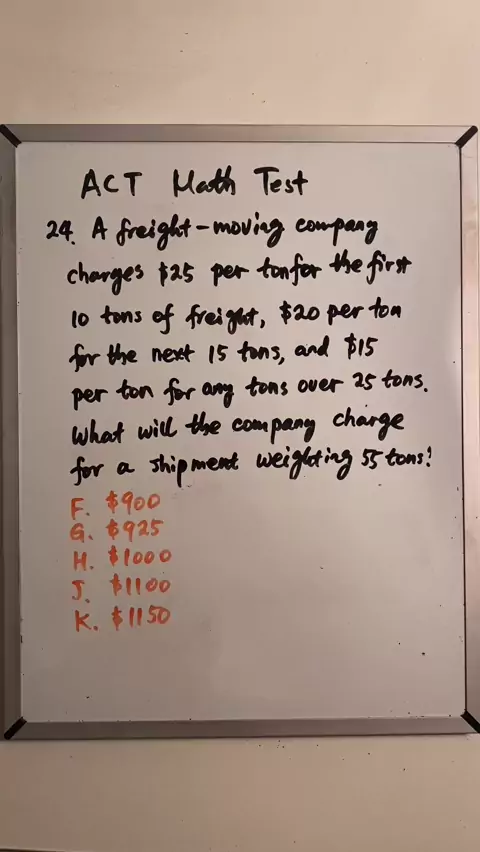 ACT Math Test
24. A freight-moving company
charges $25 per ton for the first
10 tons of freight, $20 per ton
for the next 15 tons, and $15
per ton for any tons over 25 tons.
What will the company charge
for a shipment weighting 55 tons?
F. $900
G. $925
H. $1000
J. $1100
K. $1150